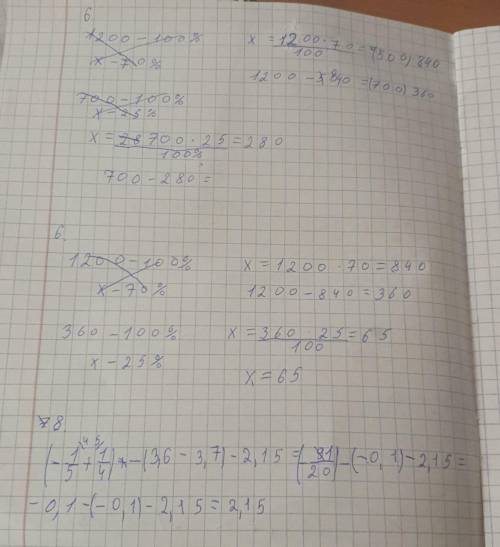 6.
1200 – 100% x = 1200 · 70 / 100 = (500) 840
x – 70% 1200 – 840 = (700) 360
700 – 100%
x – 25%
x = 28700 · 25 / 100% = 280
700 – 280 =
6.
1200 – 100% x = 1200 · 70 = 840
x – 70% 1200 – 840 = 360
360 – 100% x = 360 25 / 100 = 65
x – 25% x = 65
8
(- 1/5 + 1/4) – (3,6 – 3,7) – 2,15 = (- 1/20) – (-0,1) – 2,15 =
-0,1 – (-0,1) – 2,15 = 2,15